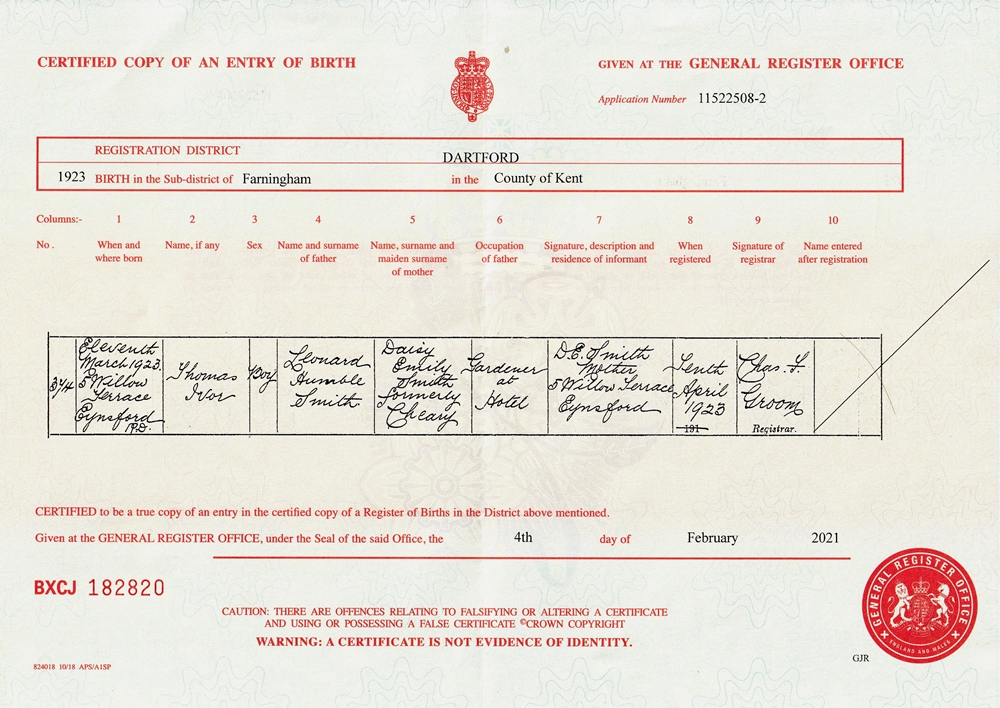 CERTIFIED COPY OF AN ENTRY OF BIRTH
GIVEN AT THE GENERAL REGISTER OFFICE
Application Number 11522508-2
REGISTRATION DISTRICT DARTFORD
1923 BIRTH in the Sub-district of Farningham in the County of Kent
Columns:- 1 2 3 4 5 6 7 8 9 10
No. When and where born
Name, if any
Sex
Name and surname of father
Name, surname and maiden surname of mother
Occupation of father
Signature, description and residence of informant
When registered
Signature of registrar
Name entered after registration
Eleventh
March 1923.
5 Willow
Terrace
Eynsford
R.D.
Thomas
Ivor
Boy
Leonard
Humble
Smith
Daisy
Emily
Smith
formerly
Cheary
Gardener
at
Hotel
D.E. Smith
Mother
5 Willow Terrace
Eynsford
Tenth
April
1923
191
Chas. F.
Groom
Registrar.
CERTIFIED to be a true copy of an entry in the certified copy of a Register of Births in the District above mentioned.
Given at the GENERAL REGISTER OFFICE, under the Seal of the said Office, the 4th day of February 2021
BXCJ 182820
CAUTION: THERE ARE OFFENCES RELATING TO FALSIFYING OR ALTERING A CERTIFICATE
AND USING OR POSSESSING A FALSE CERTIFICATE ©CROWN COPYRIGHT
WARNING: A CERTIFICATE IS NOT EVIDENCE OF IDENTITY.
GENERAL REGISTER OFFICE
ENGLAND AND WALES
824018 10/18 APS/A1SP
GJR